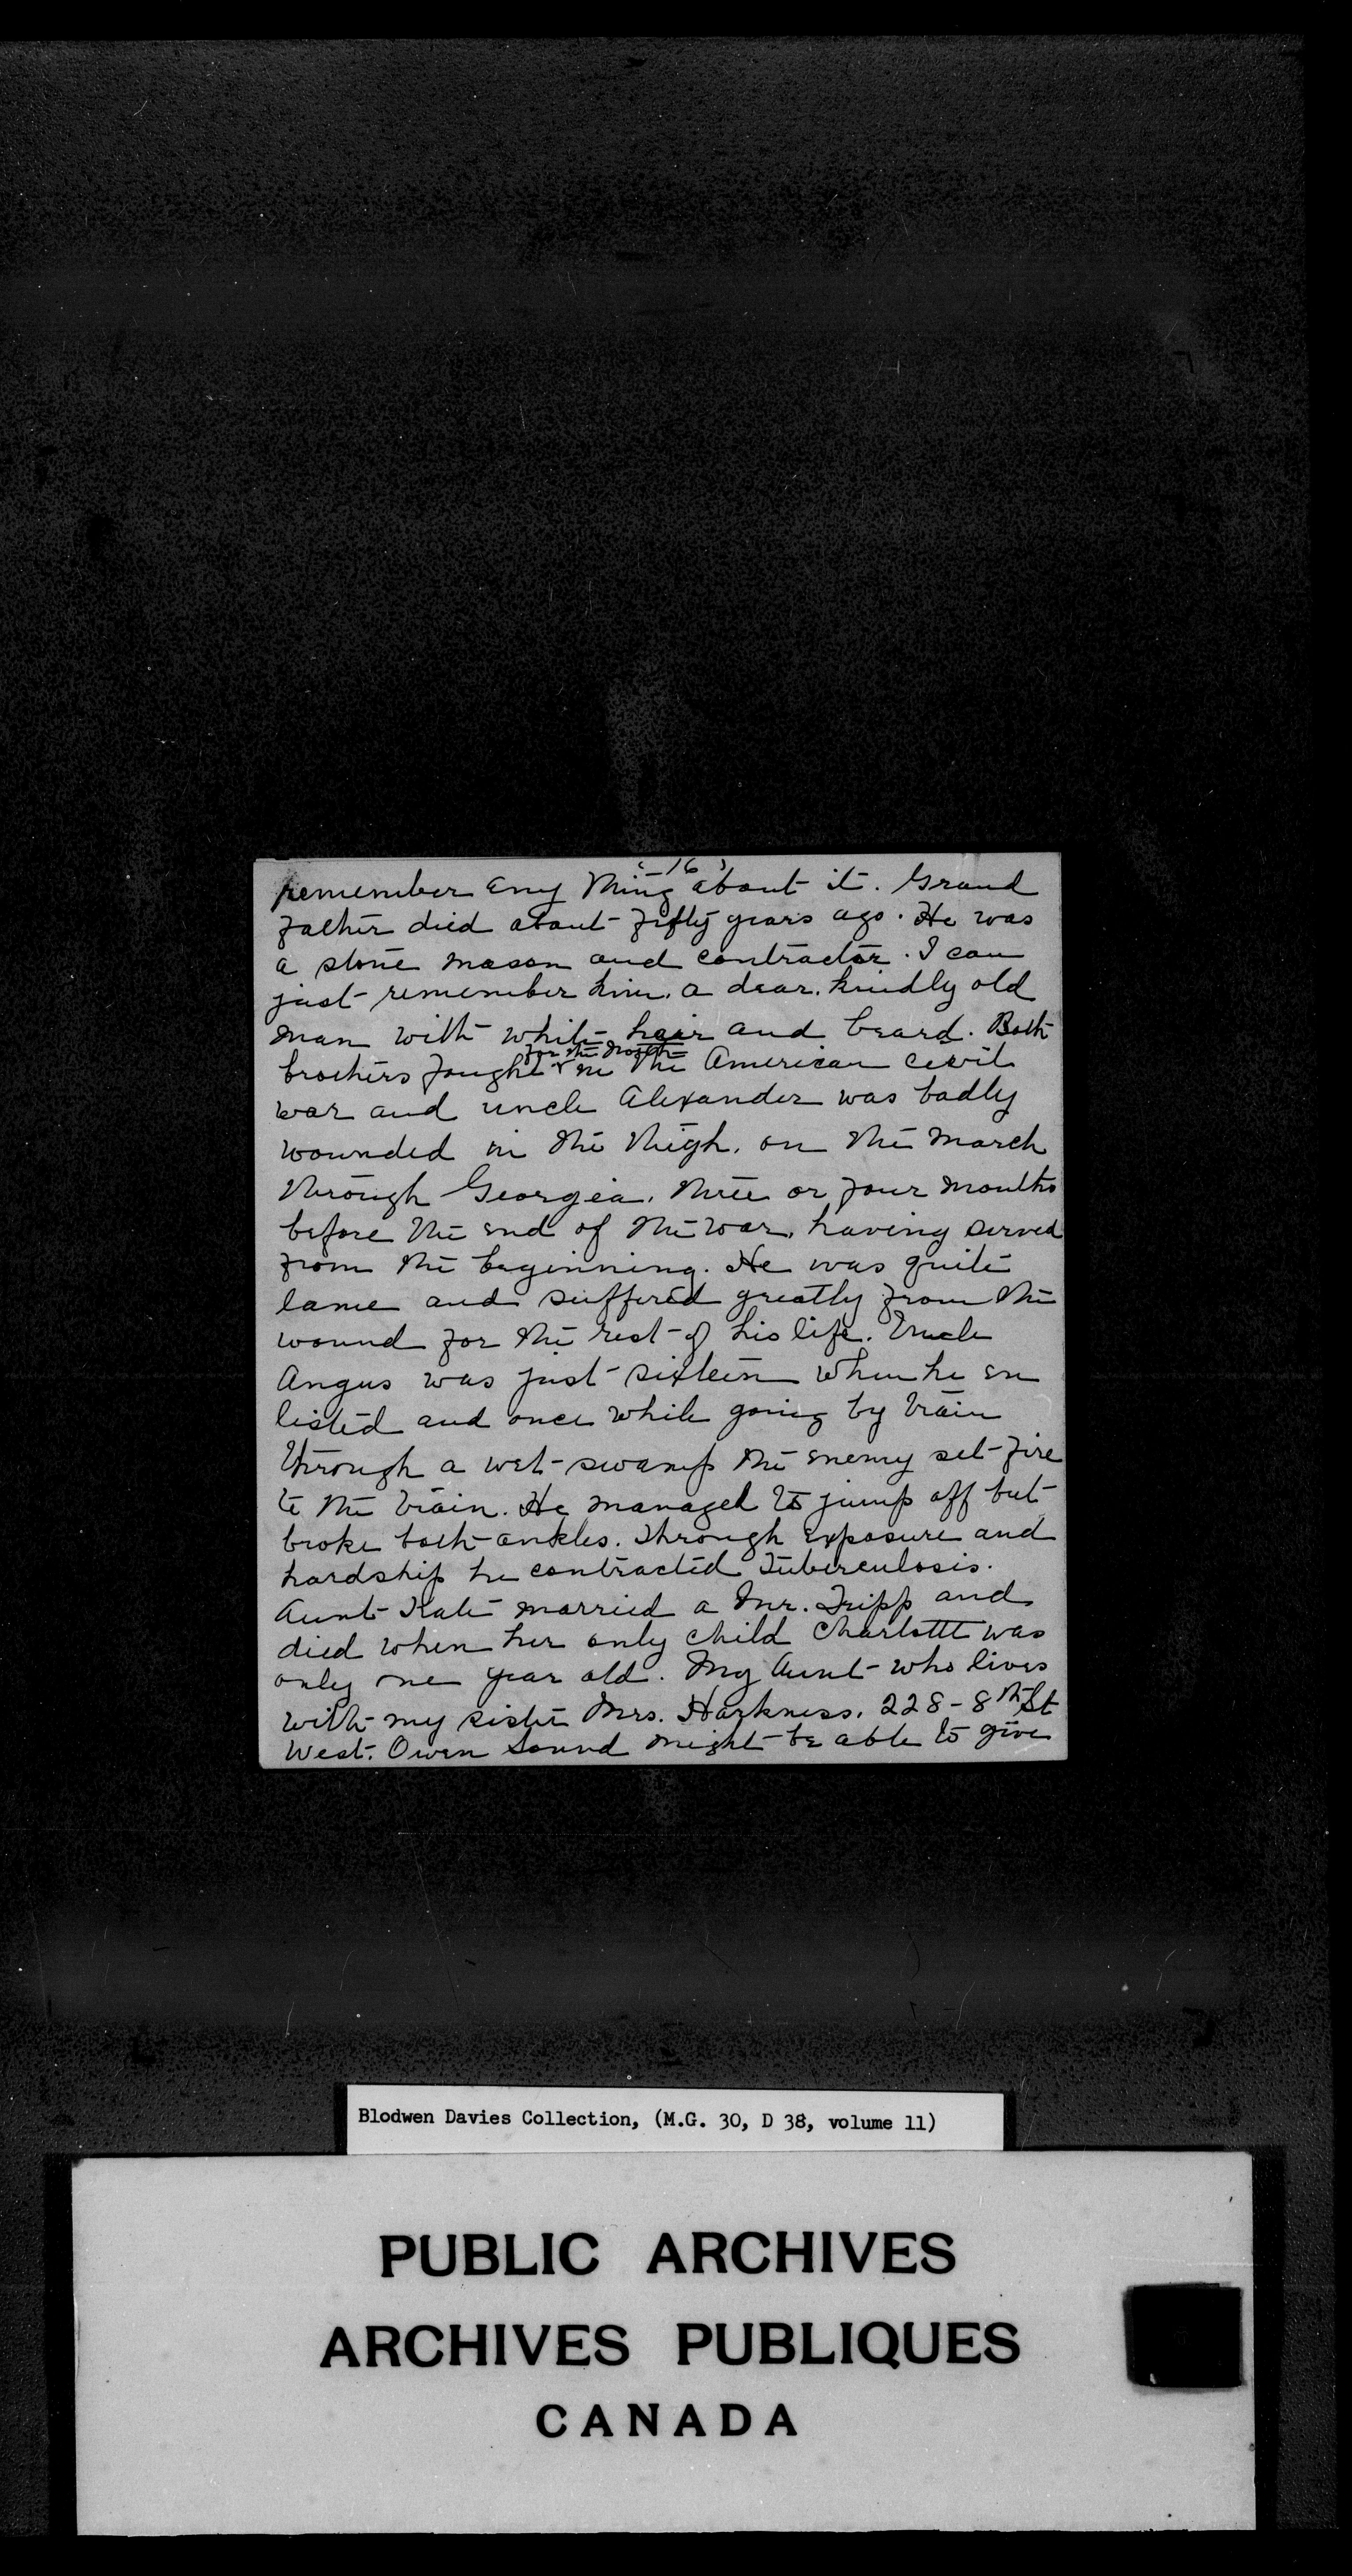 (-16)
remember any thing about it. Grand
father died about fifty years ago. He was
a stone mason and contractor. I can
just remember him, a dear, kindly old
man with white hair and beard. Both
for the North
brothers fought in the American civil
war and uncle Alexander was badly
wounded in the thigh, on the march
through Georgia, three or four months
before the end of the war, having served
from the beginning. He was quite
lame and suffered greatly from the
wound for the rest of his life. Uncle
Angus was just sixteen when he en
listed and once while going by train
through a wet swamp the enemy set fire
to the train. He managed to jump off but
broke both ankles. Through exposure and
hardship he contracted Tuberculosis.
Aunt Kate married a Mr. Tripp and
died when her only child Charlotte was
only one year old. My Aunt who lives
with my sister Mrs. Harkness, 228-8th St
West. Owen Sound might be able to give
Blodwen Davies Collection, (M.G. 30, D 38, volume 11)
PUBLIC ARCHIVES
ARCHIVES PUBLIQUES
CANADA